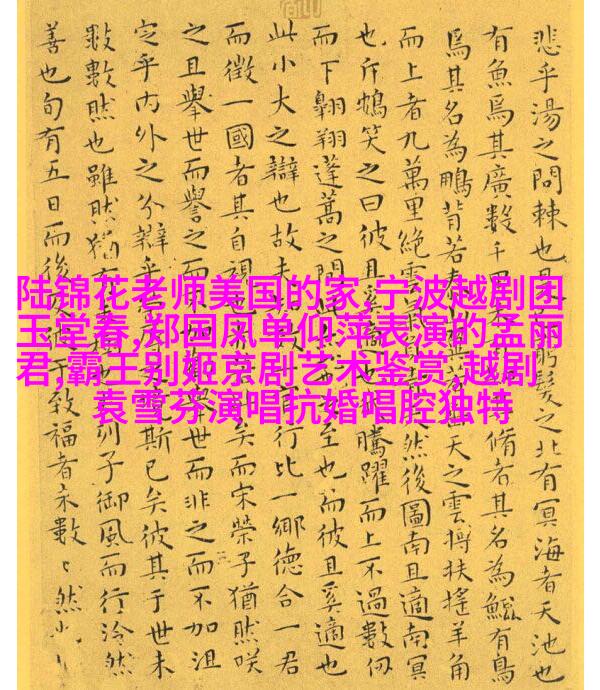 悲乎湯之問棘也是窮髮之北有冥海者天池也
有魚焉其廣數千里脩者其名為鯤有鳥
焉其名為鵬背若垂天之雲摶扶搖羊角
而上者九萬里絕雲氣然後圖南且適南冥
也斥鴳笑之曰彼且奚適也騰躍而上不過數仞
而下翱翔蓬蒿之間至也而彼且奚適也
此小大之辯也故夫官行比一鄉德合一君
而徵一國者其自視也矣而宋榮子猶然咲
之且舉世而譽之而不加非之而不加沮
定乎內外之分辯乎斯已矣彼其于世未
數數然也雖然猶列子御風而行泠然
善也旬有五日而後于致福者未數〻然
陆锦花老师美国的家,宁波越剧团
玉堂春,郑国凤单仰萍表演的孟丽
君,霸王别姬京剧艺术鉴赏,越剧
袁雪芬演唱抗婚唱腔独特